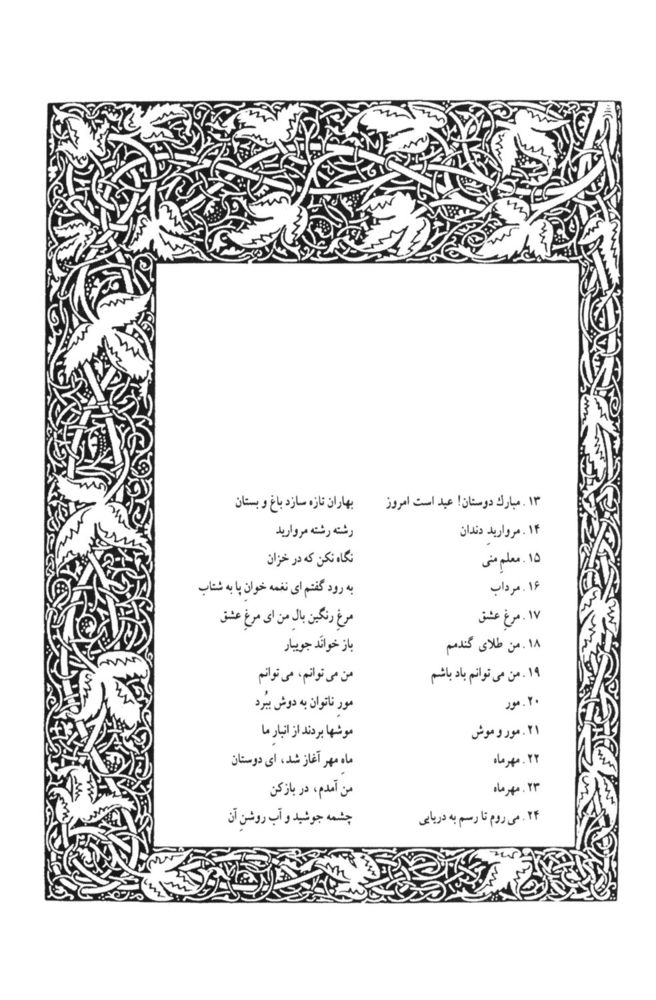 ۱۳. مبارك دوستان! عید است امروز بهاران تازه سازد باغ و بستان
۱۴. مرواریدِ دندان رشته رشته مروارید
۱۵. معلمِ منَی نگاه نکن که در خزان
۱۶. مرداب به رود گفتم ای نغمه خوانِ پا به شتاب
۱۷. مرغِ عشق مرغِ رنگین بالِ من ای مرغِ عشق
۱۸. من طلای گندمم باز خوانَد جویبار
۱۹. من می‌توانم باد باشم من می‌توانم، می‌توانم
۲۰. مور مورِ ناتوان به دوش ببُرد
۲۱. مور و موش موشها بردند از انبارِ ما
۲۲. مهرماه ماهِ مهر آغاز شد، ای دوستان
۲۳. مهرماه من آمدم، در بازکن
۲۴. می روم تا رسم به دریایی چشمه جوشید و آب روشنِ آن